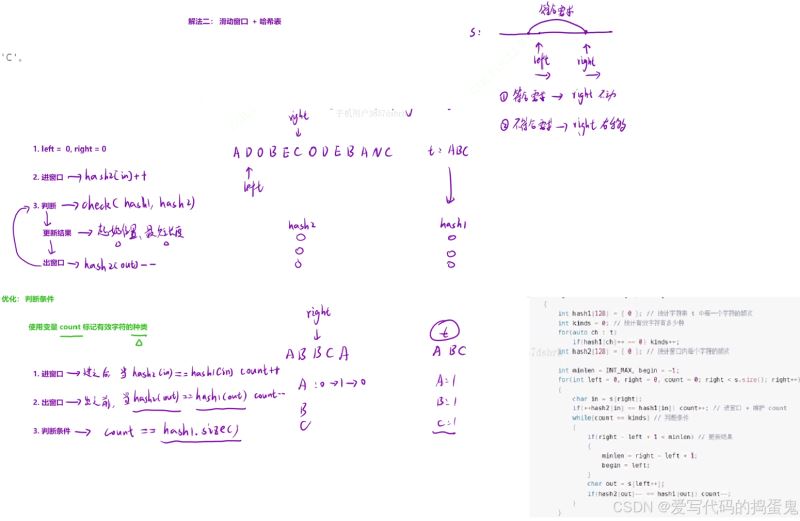 解法二： 滑动窗口 + 哈希表
'C'。
符合要求
s:
left right
① 符合要求 → right 不动
② 不符合要求 → right 右移
right
1. left = 0, right = 0
A D O B E C O D E B A N C t: ABC
left
2. 进窗口 → hash2(in)++
3. 判断 → check(hash1, hash2)
更新结果 → 起始位置、最短长度
出窗口 → hash2(out)--
hash2 hash1
优化： 判断条件
使用变量 count 标记有效字符的种类
right
A B B C A
t
A B C
1. 进窗口 → 进之后, 当 hash2(in) == hash1(in) count++
2. 出窗口 → 出之前, 当 hash2(out) == hash1(out) count--
3. 判断条件 → count == hash1.size()
A : 0 → 1 → 0
B
C
A:1
B:1
C:1
{
int hash1[128] = { 0 }; // 统计字符串 t 中每一个字符的频次
int kinds = 0; // 统计有效字符有多少种
for(auto ch : t)
if(hash1[ch]++ == 0) kinds++;
int hash2[128] = { 0 }; // 统计窗口内每个字符的频次
int minlen = INT_MAX, begin = -1;
for(int left = 0, right = 0, count = 0; right < s.size(); right++)
{
char in = s[right];
if(++hash2[in] == hash1[in]) count++; // 进窗口 + 维护 count
while(count == kinds) // 判断条件
{
if(right - left + 1 < minlen) // 更新结果
{
minlen = right - left + 1;
begin = left;
}
char out = s[left++];
if(hash2[out]-- == hash1[out]) count--;
}
}
CSDN @爱写代码的捣蛋鬼